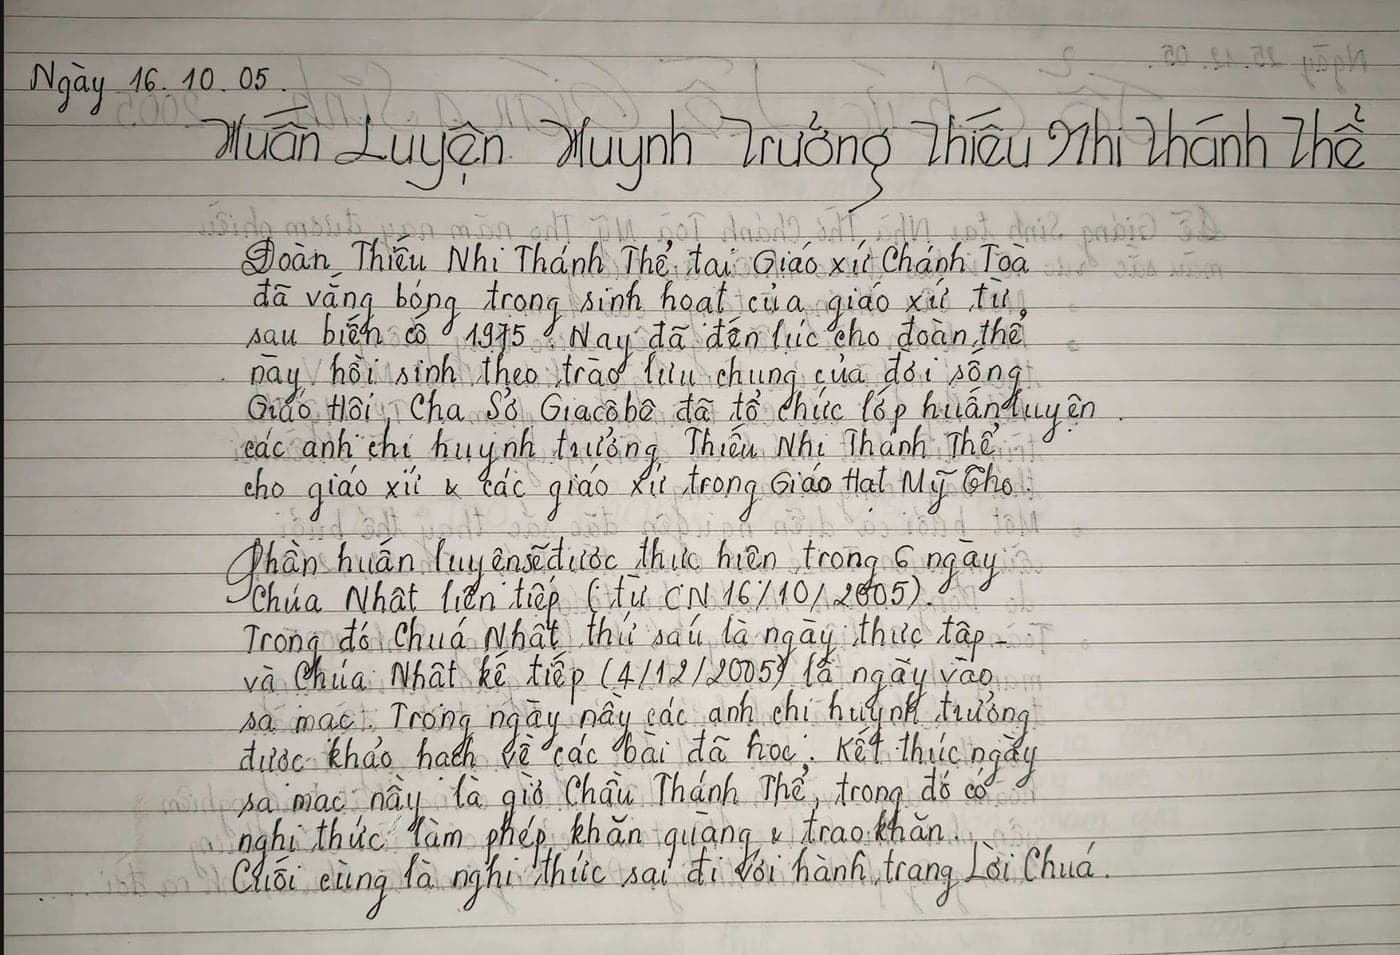 Ngày 16.10.05.
Huấn Luyện Huynh Trưởng Thiếu Nhi Thánh Thể
Đoàn Thiếu Nhi Thánh Thể tại Giáo xứ Chánh Toà
đã vắng bóng trong sinh hoạt của giáo xứ từ
sau biến cố 1975. Nay đã đến lúc cho đoàn thể
này hồi sinh theo trào lưu chung của đời sống
Giáo Hội, Cha Sở Giacôbê đã tổ chức lớp huấn luyện
các anh chị huynh trưởng Thiếu Nhi Thánh Thể
cho giáo xứ & các giáo xứ trong Giáo Hạt Mỹ Tho.
Phần huấn luyện sẽ được thực hiện trong 6 ngày
Chúa Nhật liên tiếp (từ CN 16/10/2005).
Trong đó Chuá Nhật thứ saú là ngày thực tập -
và Chúa Nhật kế tiếp (4/12/2005) là ngày vào
sa mạc. Trong ngày nầy các anh chị huynh trưởng
được khảo hạch về các bài đã học. Kết thúc ngày
sa mạc nầy là giờ Chầu Thánh Thể, trong đó có
nghi thức làm phép khăn quàng & trao khăn.
Cuối cùng là nghi thức sai đi với hành trang Lời Chuá.